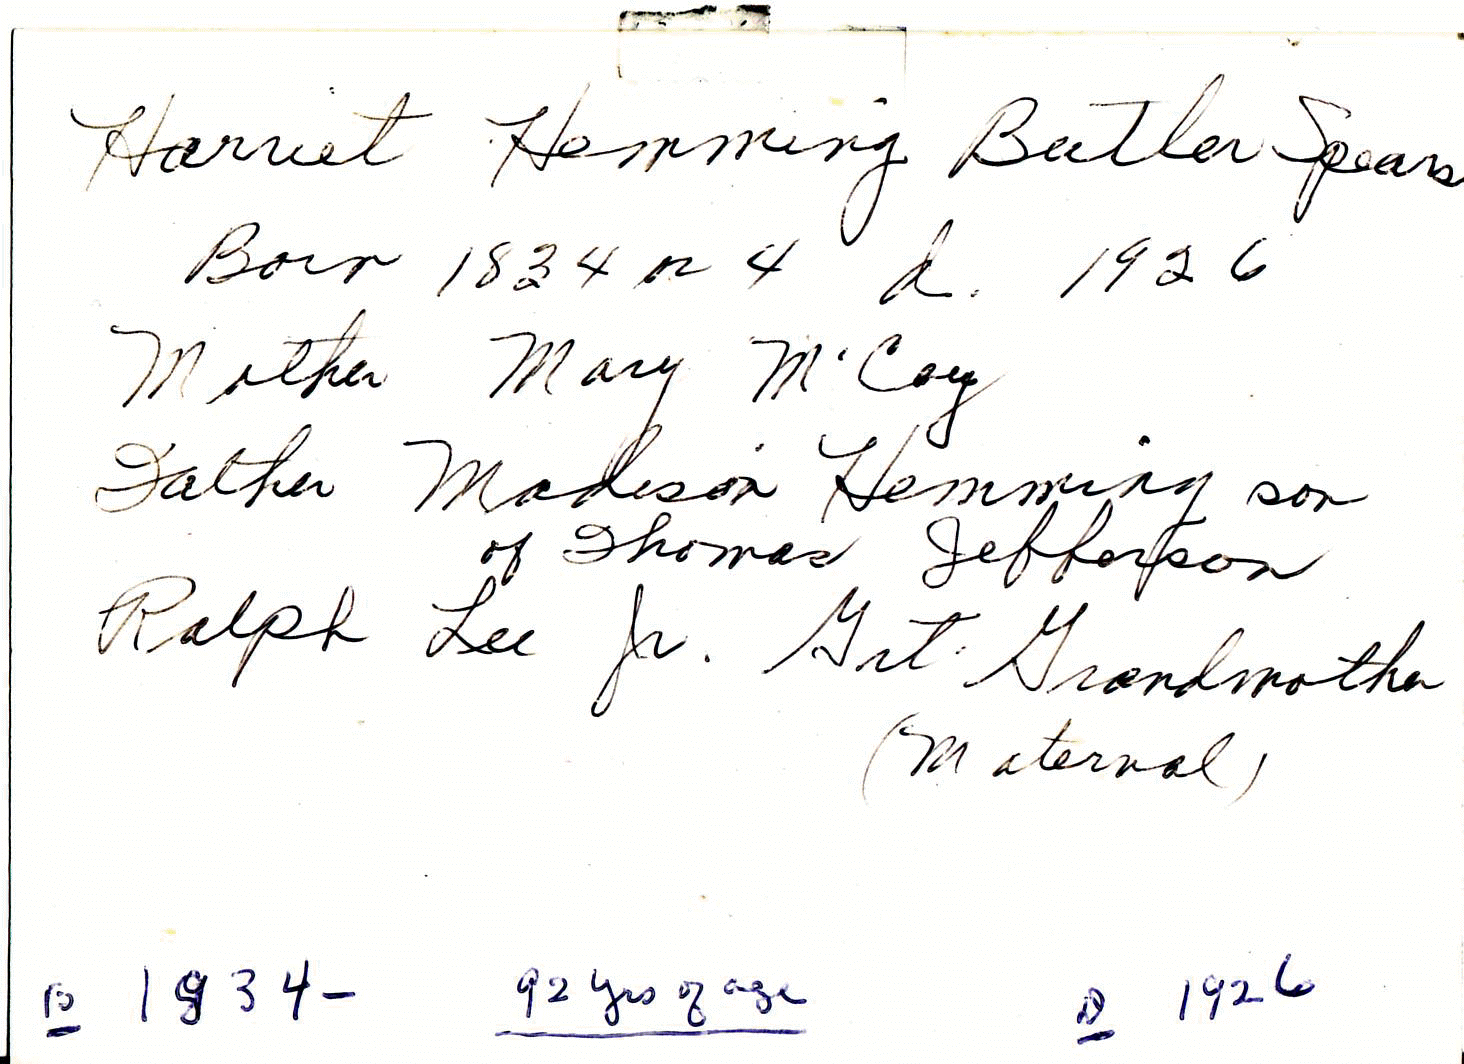 Harriet Hemming Butler Spears
Born 1834 or 4 d. 1926
Mother Mary McCoy
Father Madison Hemming son
of Thomas Jefferson
Ralph Lee Jr. Grt. Grandmother
(Maternal)
B 1834- 92 yrs of age D 1926